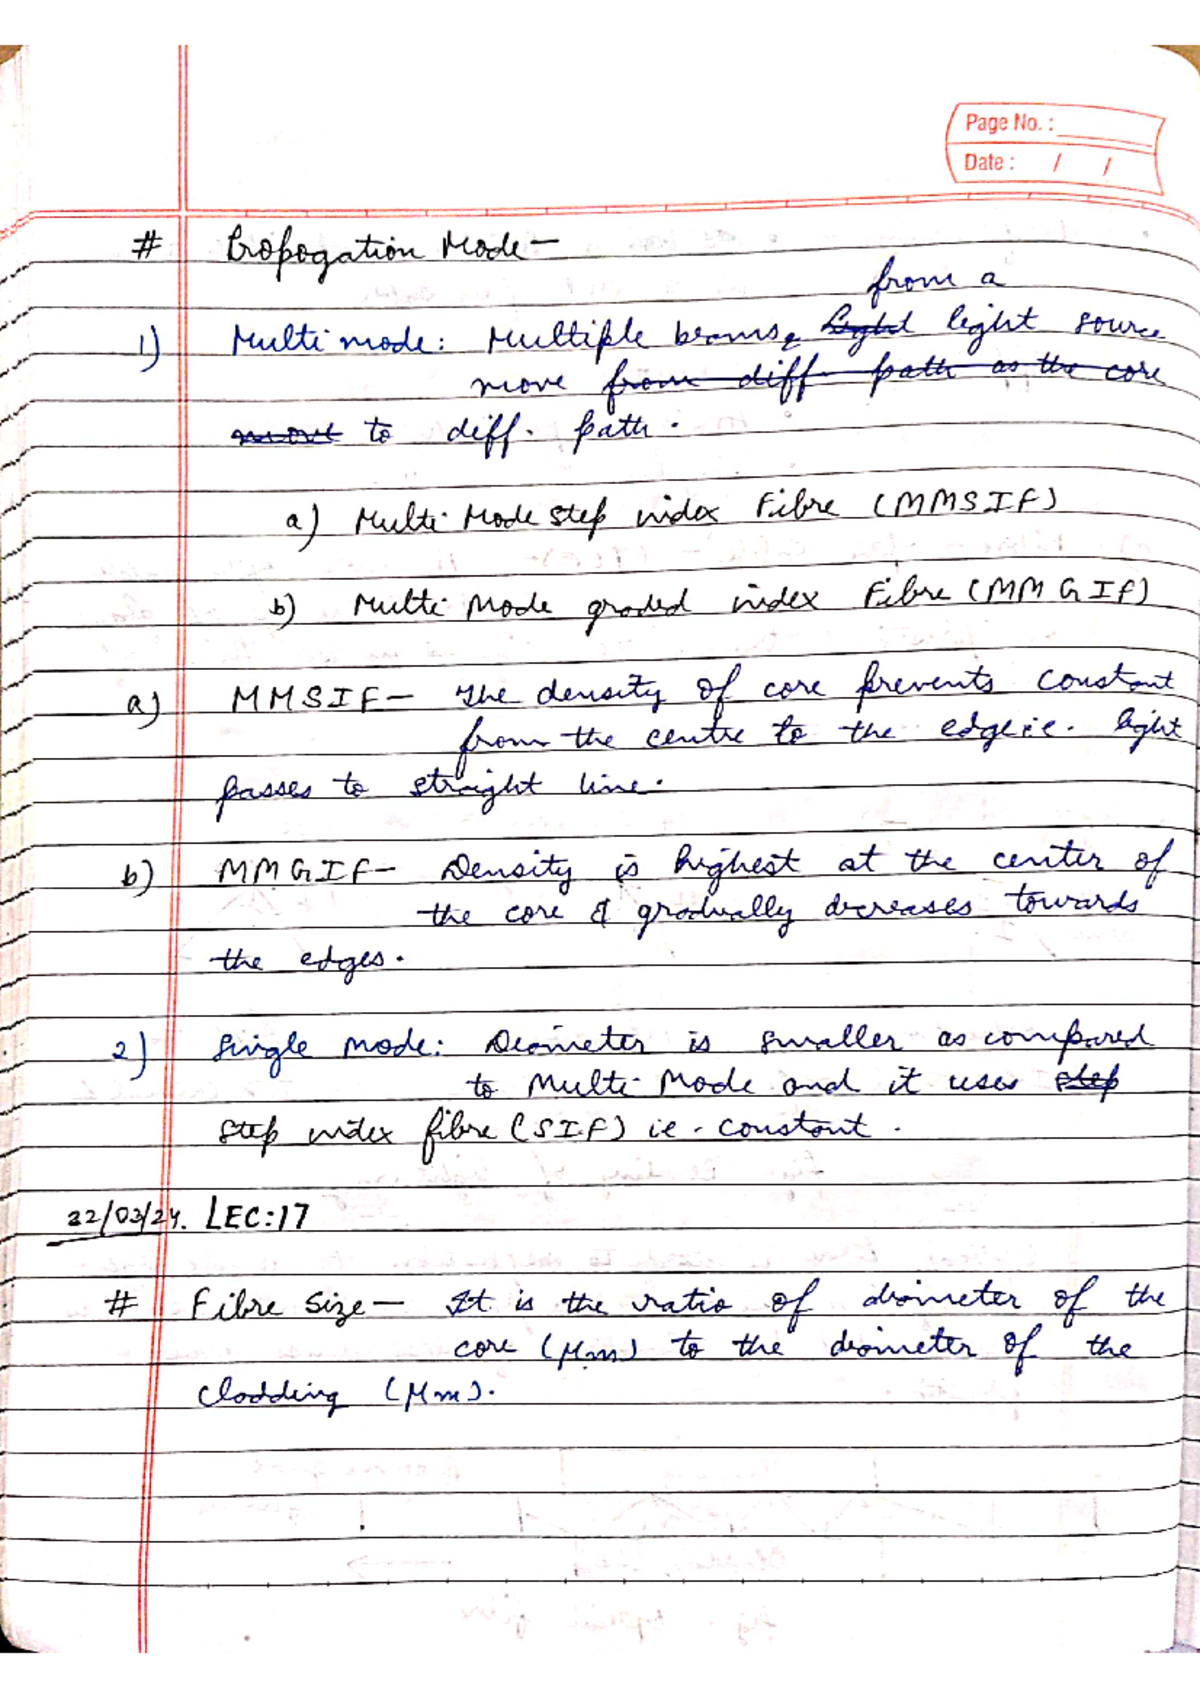 Page No. :
Date : / /
# Propogation Mode —
from a
1) Multi mode: Multiple beams, light light source
move from diff. path as the core
move to diff. path.
a) Multi Mode step index Fibre (MMSIF)
b) Multi Mode graded index Fibre (MMGIF)
a) MMSIF — The density of core prevents constant
from the centre to the edge i.e. light
passes to straight line.
b) MMGIF — Density is highest at the center of
the core & gradually decreases towards
the edges.
2) Single mode: Diameter is smaller as compared
to Multi Mode and it uses step
step index fibre (SIF) ie. constant.
22/03/24. LEC:17
# Fibre Size — It is the ratio of diameter of the
core (μm) to the diameter of the
cladding (μm).